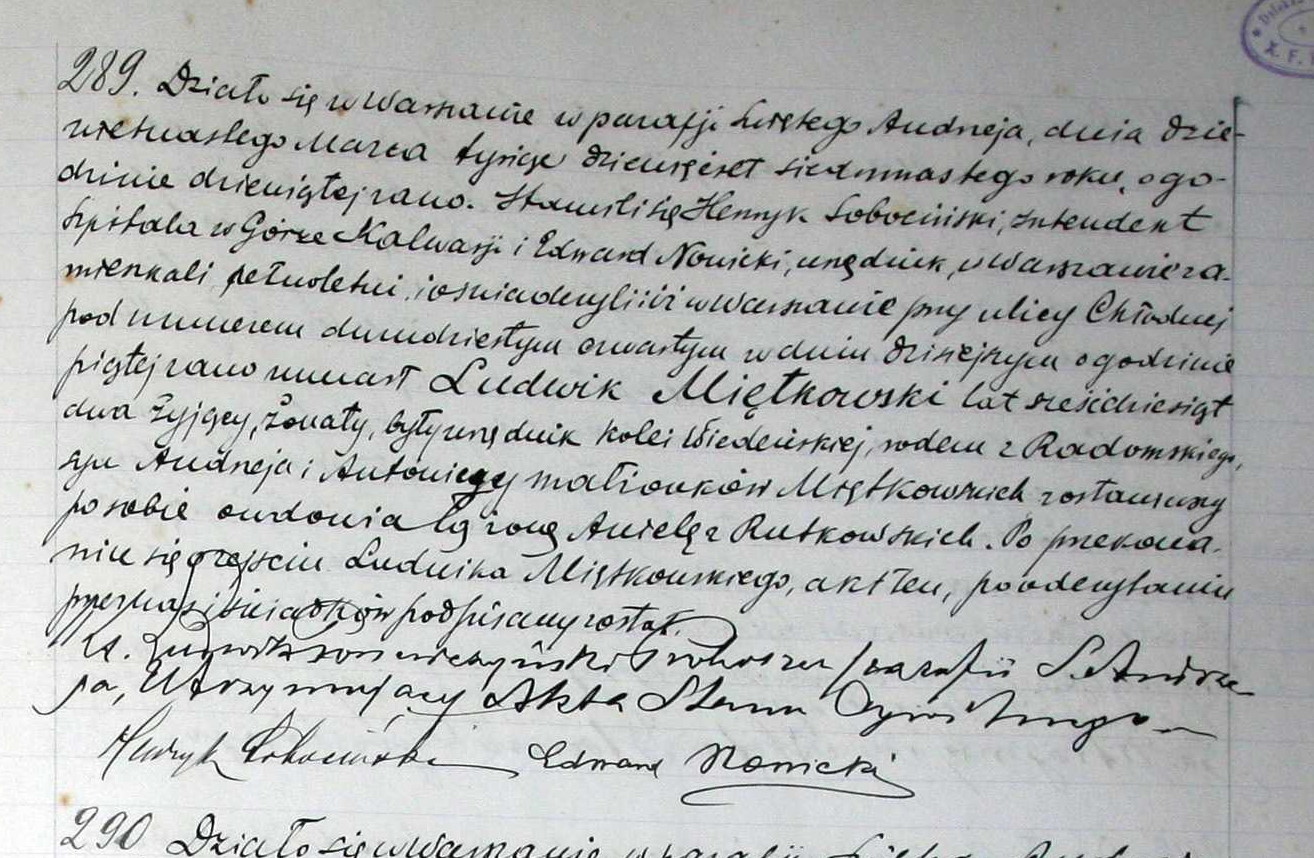 289. Działo się w Warszawie w parafji Świętego Andrzeja, dnia dzie-
więtnastego Marca tysiąc dziewięćset siedmnastego roku, o go-
dzinie dziewiątej rano. Stawili się Henryk Sobociński, Intendent
Szpitala w Górze Kalwarji i Edward Nowicki, urzędnik, w Warszawie za-
mieszkali pełnoletni, i oświadczyli iż w Warszawie przy ulicy Chłodnej
pod numerem dwudziestym czwartym w dniu dzisiejszym o godzinie
piątej rano umarł Ludwik Miętkowski lat sześćdziesiąt
dwa żyjący, żonaty, były urzędnik kolei Wiedeńskiej, rodem z Radomskiego,
syn Andrzeja i Antoniny małżonków Miętkowskich zostawiwszy
po sobie owdowiałą żonę Anielę z Rutkowskich. Po przekona-
niu się o zejściu Ludwika Miętkowskiego, akt ten, po odczytaniu
przez nas i świadków podpisany został.
Proboszcz parafii S. Andrze-
ja, Utrzymujący Akta Stanu Cywilnego
Henryk Sobociński Edward Nowicki
290 Działo się w Warszawie w parafji
X. F.